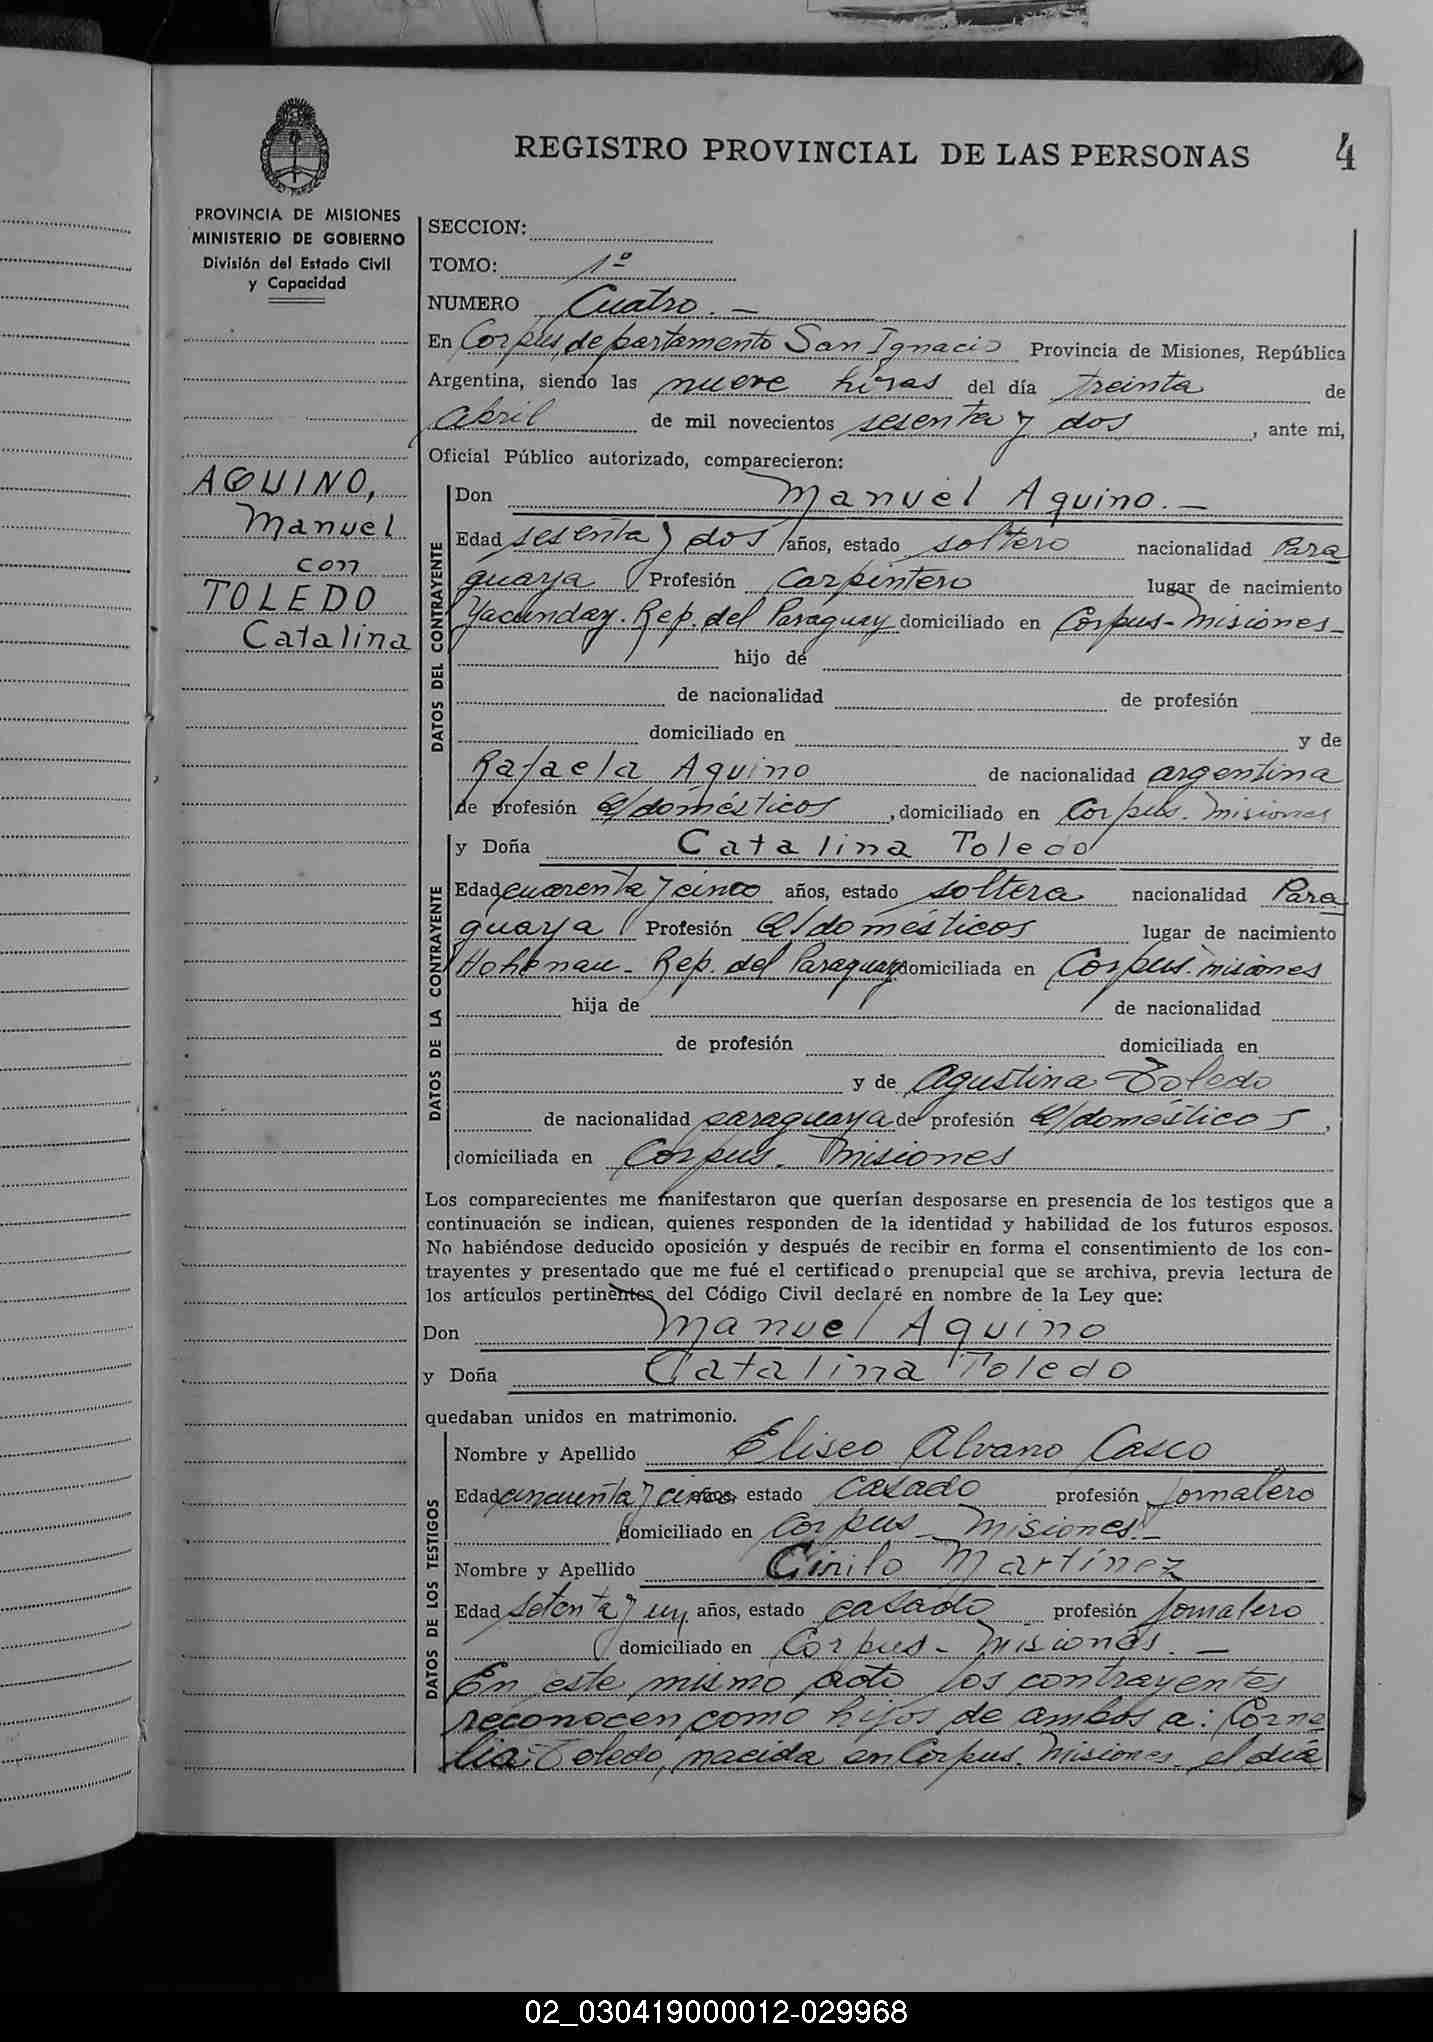 REGISTRO PROVINCIAL DE LAS PERSONAS
4
PROVINCIA DE MISIONES
MINISTERIO DE GOBIERNO
División del Estado Civil
y Capacidad
AQUINO,
Manuel
con
TOLEDO
Catalina
SECCION:
TOMO: 1º
NUMERO Cuatro. —
En Corpus, departamento San Ignacio Provincia de Misiones, República
Argentina, siendo las nueve horas del día treinta de
Abril de mil novecientos sesenta y dos, ante mi,
Oficial Público autorizado, comparecieron:
DATOS DEL CONTRAYENTE
Don Manuel Aquino. —
Edad sesenta y dos años, estado soltero nacionalidad Para
guaya Profesión Carpintero lugar de nacimiento
Yacunday. Rep. del Paraguay domiciliado en Corpus-Misiones-
hijo de
de nacionalidad de profesión
domiciliado en y de
Rafaela Aquino de nacionalidad argentina
de profesión Q/domésticos, domiciliado en Corpus. Misiones
DATOS DE LA CONTRAYENTE
y Doña Catalina Toledo
Edad cuarenta y cinco años, estado soltera nacionalidad Para
guaya Profesión Q/domésticos lugar de nacimiento
Hohenau - Rep. del Paraguay domiciliada en Corpus. Misiones
hija de de nacionalidad
de profesión domiciliada en
y de Agustina Toledo
de nacionalidad paraguaya de profesión Q/domésticos,
domiciliada en Corpus. Misiones
Los comparecientes me manifestaron que querían desposarse en presencia de los testigos que a
continuación se indican, quienes responden de la identidad y habilidad de los futuros esposos.
No habiéndose deducido oposición y después de recibir en forma el consentimiento de los con-
trayentes y presentado que me fué el certificado prenupcial que se archiva, previa lectura de
los artículos pertinentes del Código Civil declaré en nombre de la Ley que:
Don Manuel Aquino
y Doña Catalina Toledo
quedaban unidos en matrimonio.
DATOS DE LOS TESTIGOS
Nombre y Apellido Eliseo Alvano Casco
Edad cincuenta y cinco años, estado casado profesión Jornalero
domiciliado en Corpus - Misiones. -
Nombre y Apellido Cirilo Martínez
Edad setenta y un años, estado casado profesión Jornalero
domiciliado en Corpus - Misiones. —
En este mismo acto los contrayentes
reconocen como hijos de ambos a: Corne
lia Toledo, nacida en Corpus. Misiones. el día
02_030419000012-029968